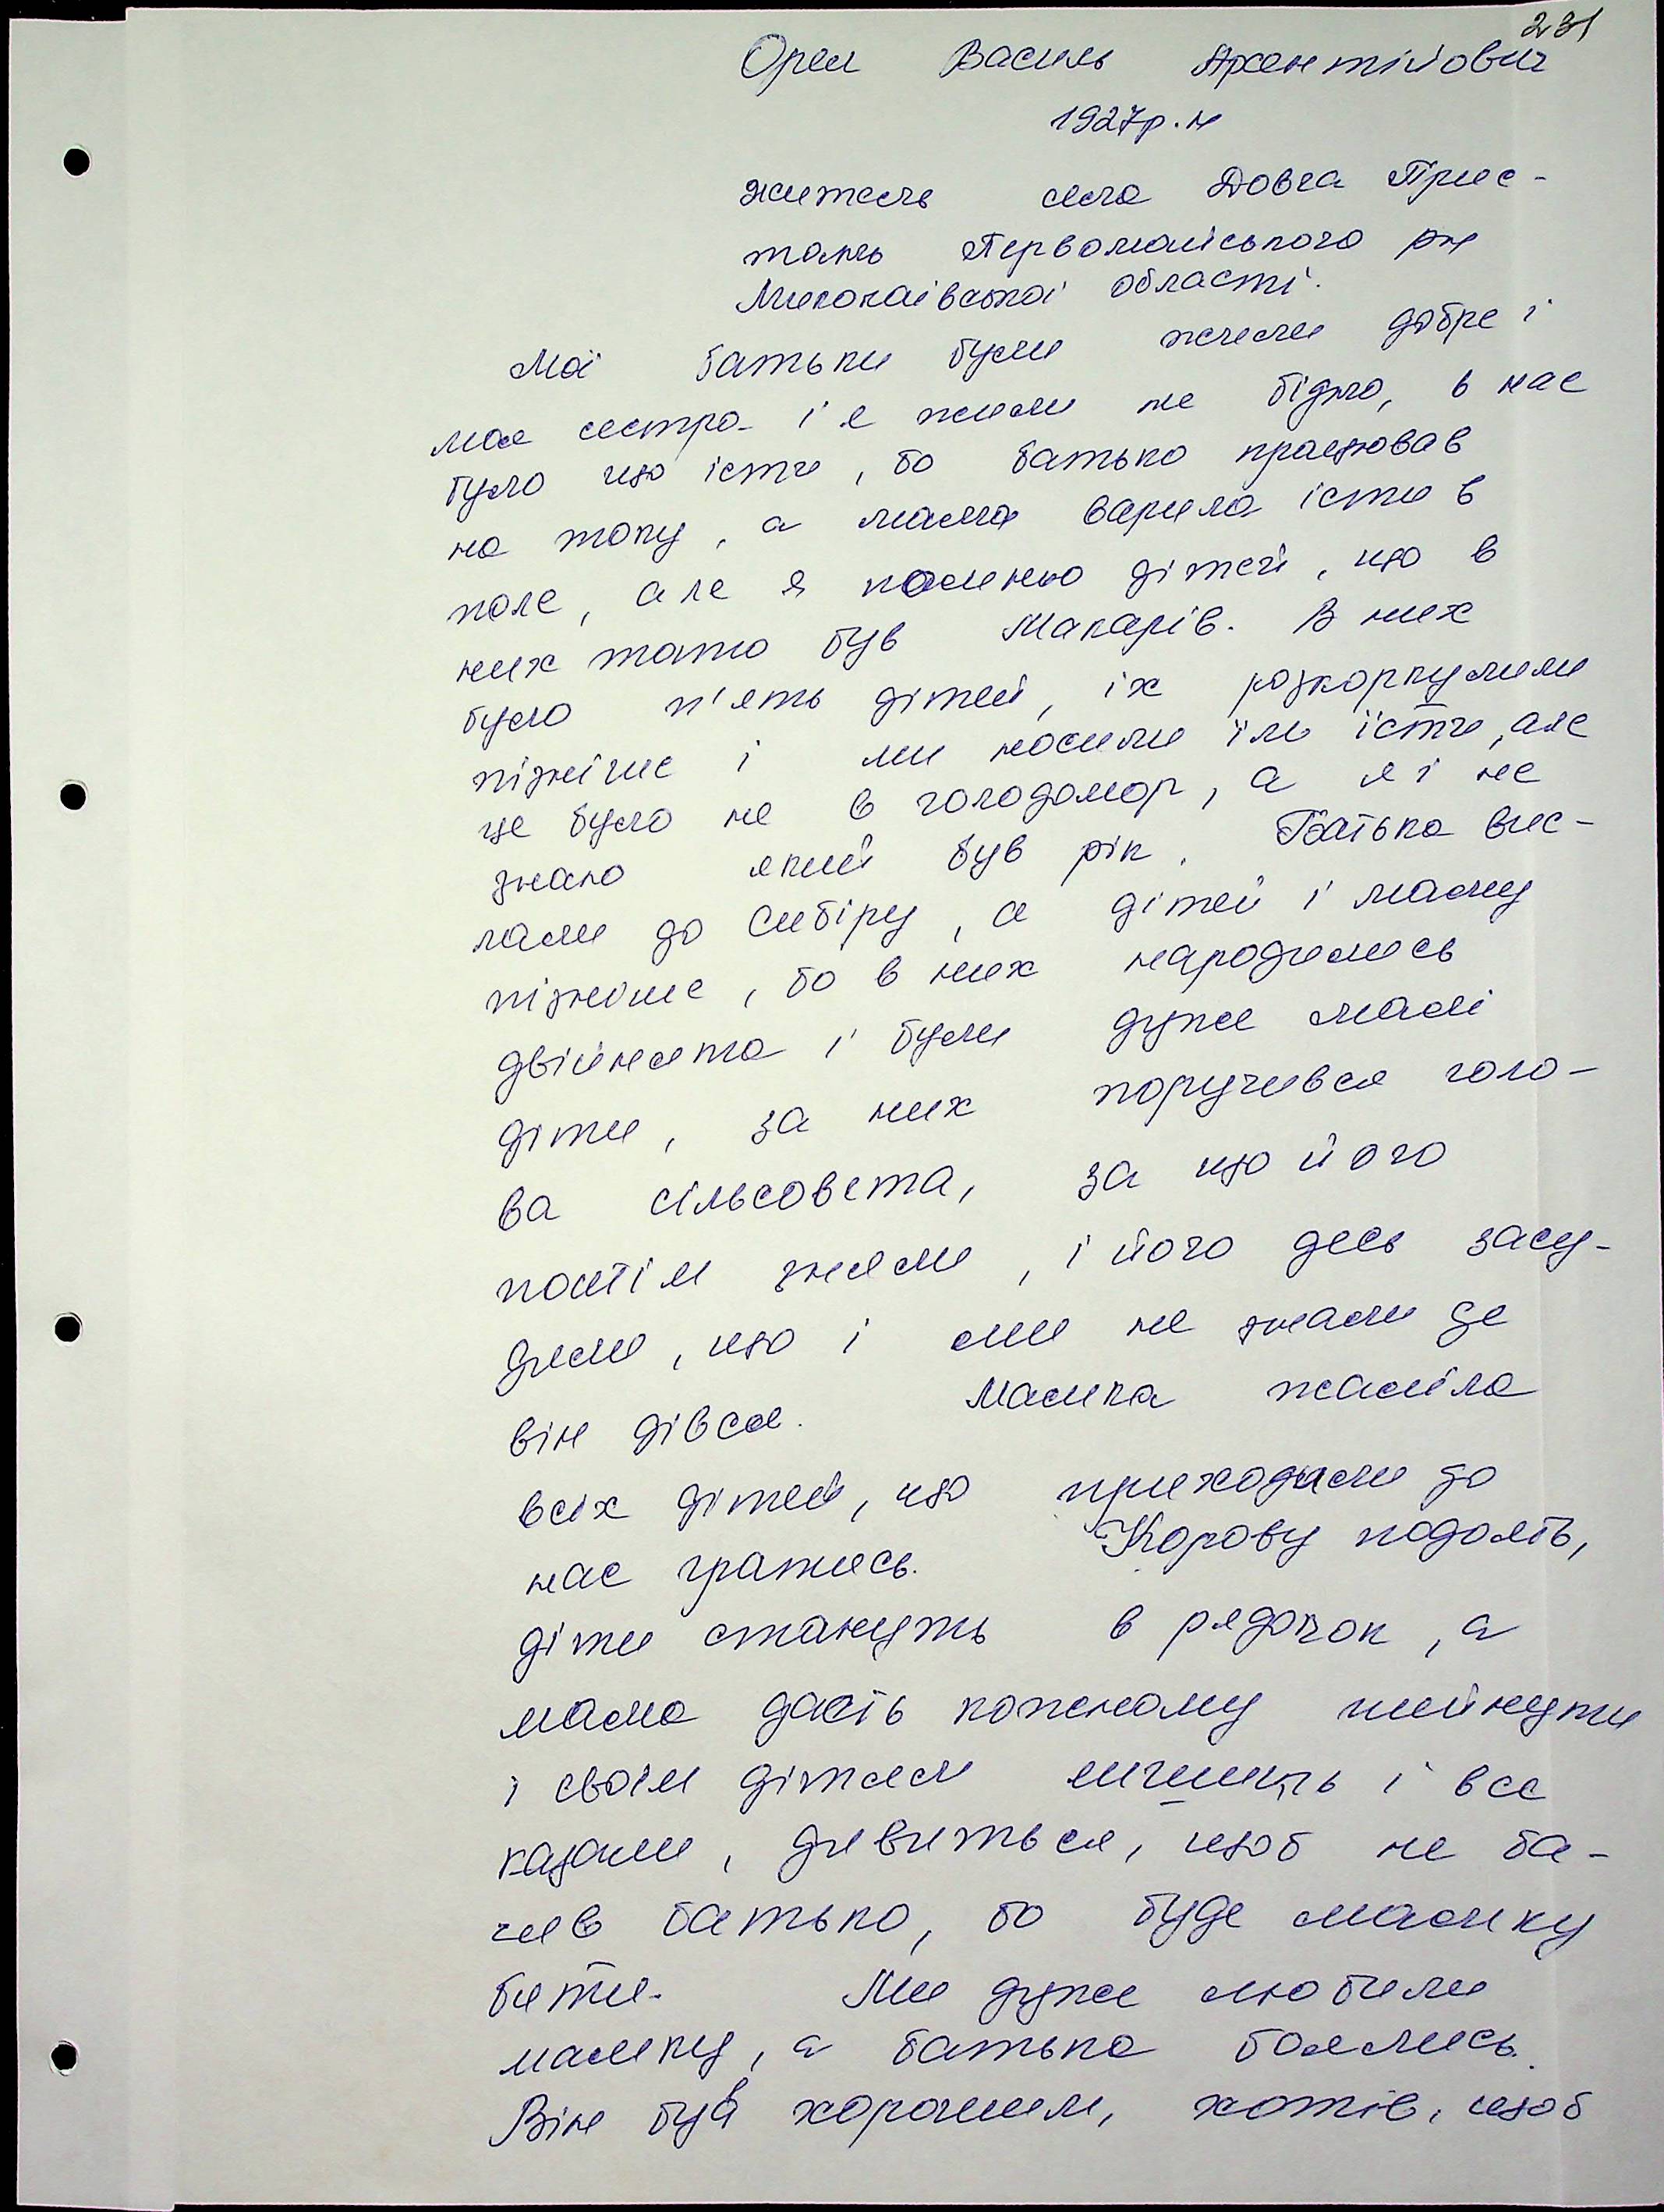 231
Орел Василь Арсентійович
1927р.н
житель села Довга Прис-
тань Первомайського р-н
Миколаївської області.
Мої батьки були жили добре і
моя сестра і я жили не бідно, в нас
було що їсти, бо батько працював
на току, а мама варила їсти в
поле, але я помню дітей, що в
них тато був Макарів. В них
було п'ять дітей, їх розкоркулили
пізніше і ми носили їм їсти, але
це було не в голодомор, а я і не
знало який був рік. Батька вис-
лали до Сибіру, а дітей і маму
пізніше, бо в них народились
двійнята і були дуже малі
діти, за них поручився голо-
ва сільсовета, за що його
потім зняли, і його десь засу-
дили, що і ми не знали де
він дівся. Мамка жаліла
всіх дітей, що приходили до
нас гратись. Корову подоять,
діти стануть в рядочок, а
мама дасть кожному
і своїм дітям лишить і все
казали, дивиться, щоб не ба-
чив батько, бо буде мамку
бити. Ми дуже любили
мамку, а батька боялись.
Він був хорошим, хотів, щоб